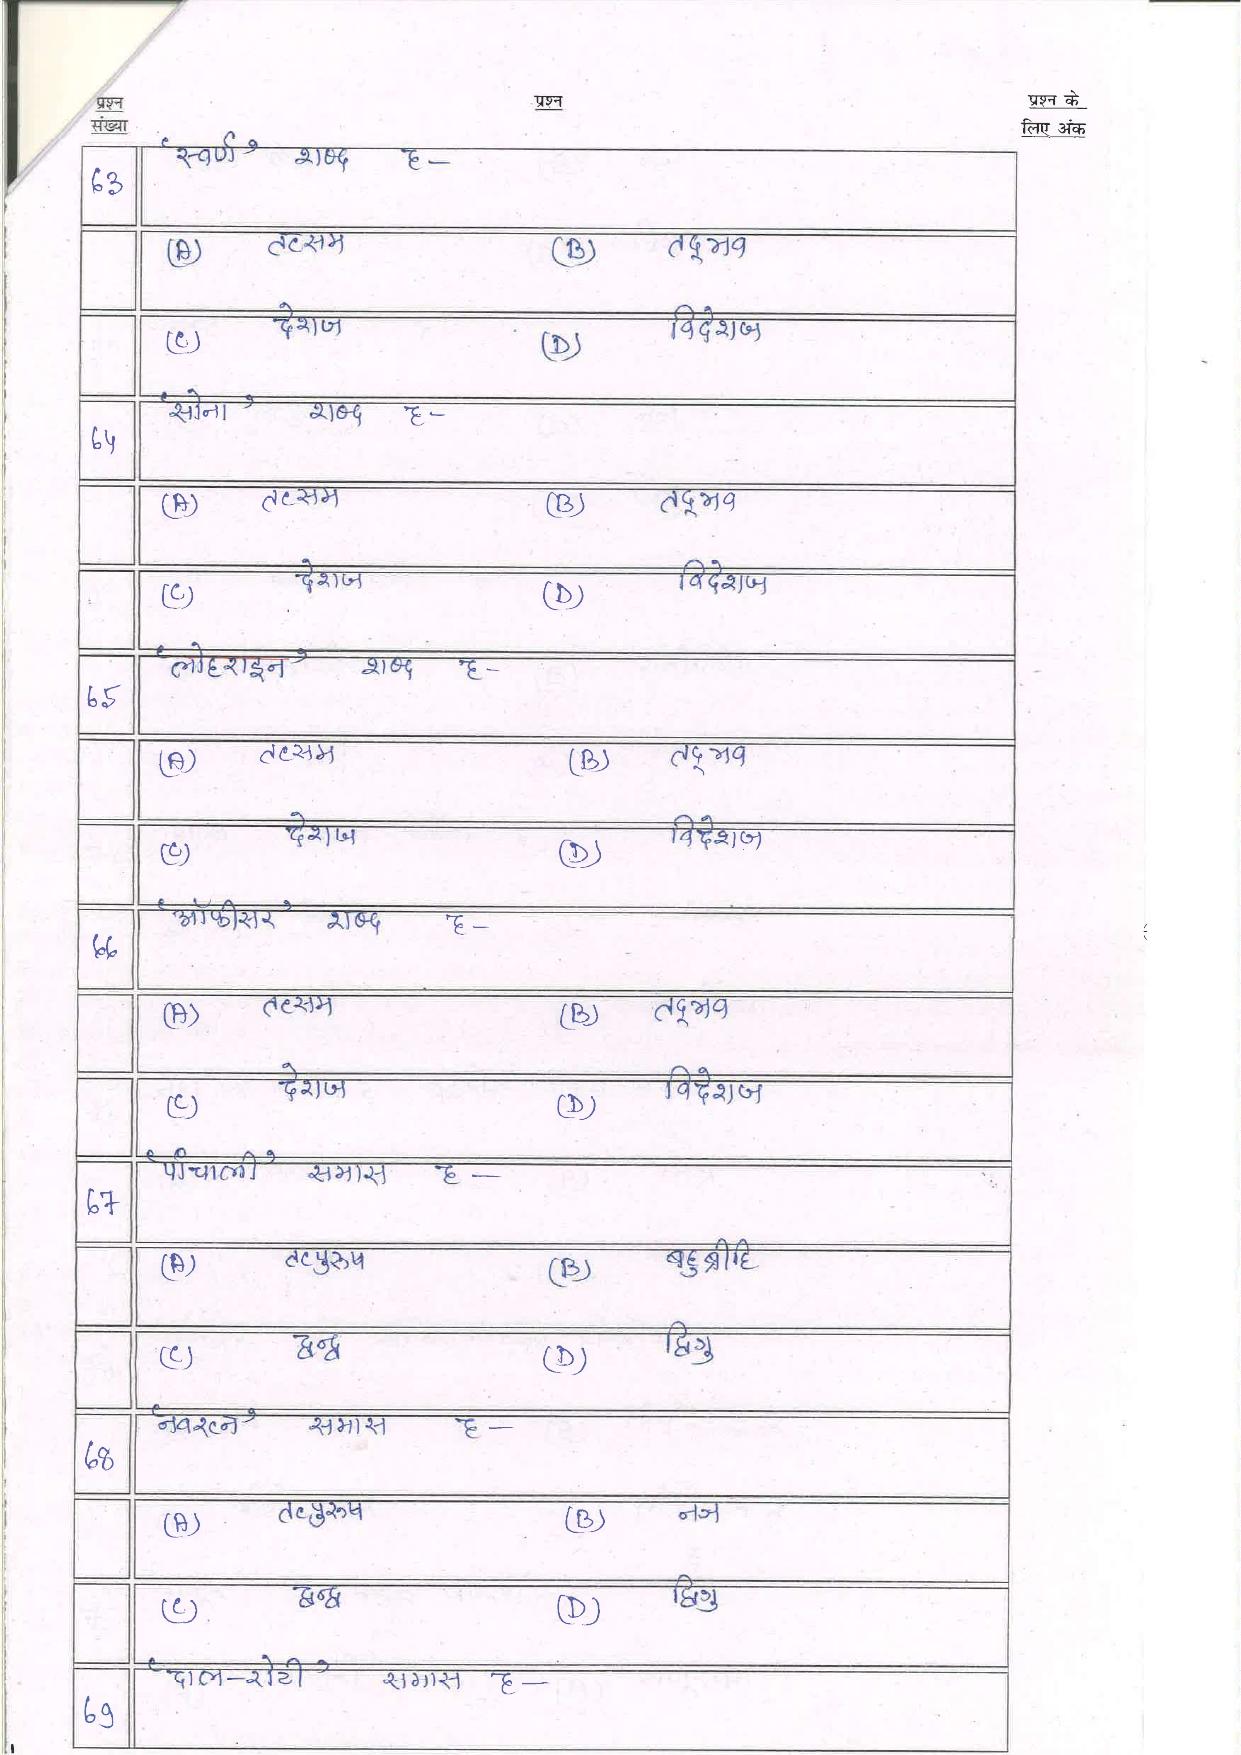 प्रश्न संख्या प्रश्न प्रश्न के लिए अंक
63 'स्वर्ण' शब्द है–
(A) तत्सम (B) तद्भव
(C) देशज (D) विदेशज
64 'सोना' शब्द है–
(A) तत्सम (B) तद्भव
(C) देशज (D) विदेशज
65 'लोहराइन' शब्द है–
(A) तत्सम (B) तद्भव
(C) देशज (D) विदेशज
66 'ऑफीसर' शब्द है–
(A) तत्सम (B) तद्भव
(C) देशज (D) विदेशज
67 'पांचाली' समास है–
(A) तत्पुरूष (B) बहुव्रीहि
(C) द्वन्द्व (D) द्विगु
68 'नवरत्न' समास है–
(A) तत्पुरूष (B) नञ
(C) द्वन्द्व (D) द्विगु
69 'दाल-रोटी' समास है–